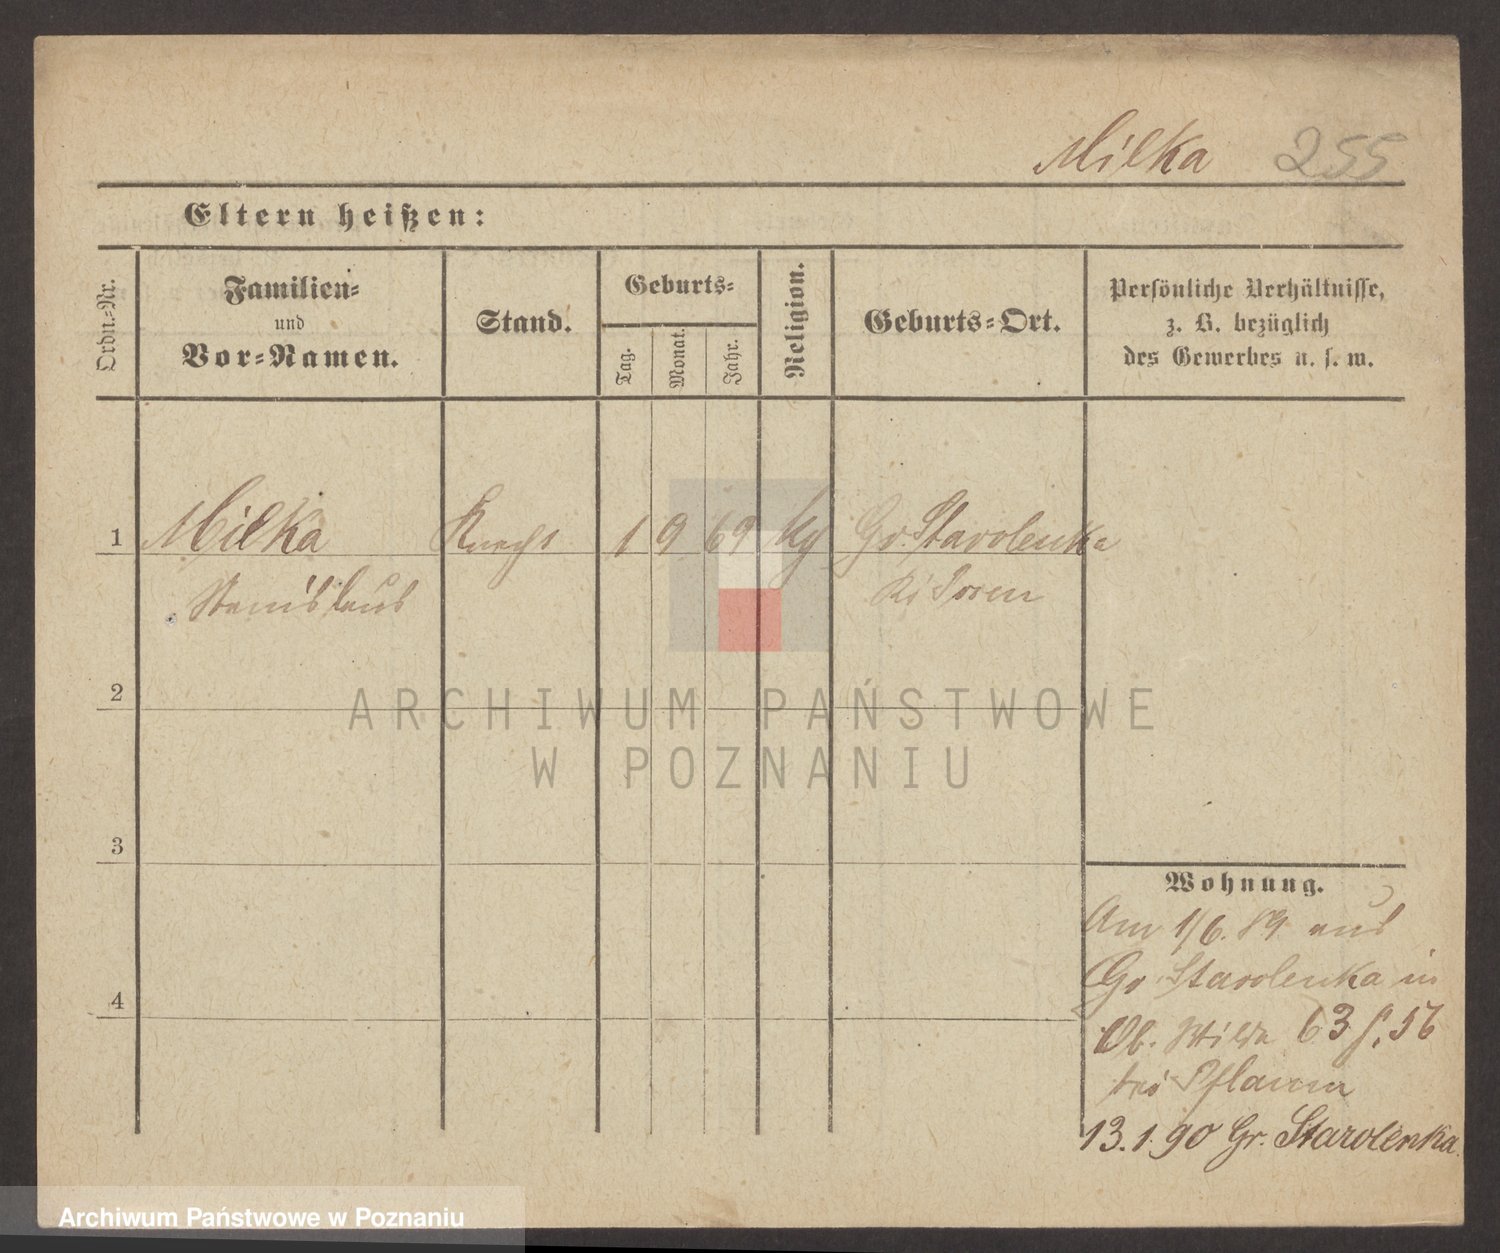 Milka 255
Eltern heißen:
Ordn.-Nr.
Familien-
und
Vor-Namen.
Stand.
Geburts-
Tag.
Monat.
Jahr.
Religion.
Geburts-Ort.
Persönliche Verhältnisse,
z. B. bezüglich
des Gewerbes u. s. w.
1 Milka Knecht 1 9 69 kg Gr. Starolenka
Stanislaus Kr Posen
2
3
4
Wohnung.
Am 1/6. 89. aus
Gr Starolenka in
Ob. Wilda 63 f. 56
bei Pflaum
13.1.90 Gr. Starolenka.
ARCHIWUM PAŃSTWOWE
W POZNANIU
Archiwum Państwowe w Poznaniu